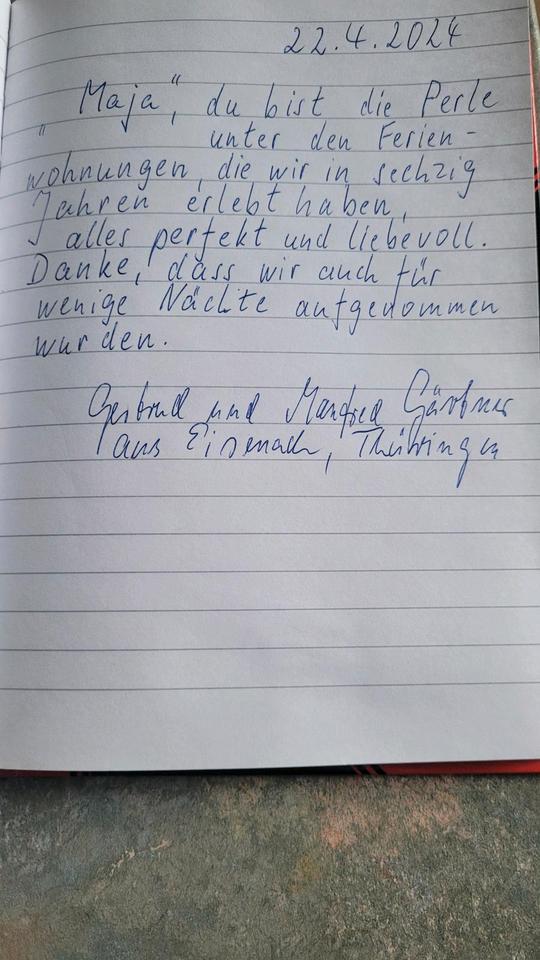 22.4.2024
„Maja“, du bist die Perle
unter den Ferien-
wohnungen, die wir in sechzig
Jahren erlebt haben,
alles perfekt und liebevoll.
Danke, dass wir auch für
wenige Nächte aufgenommen
wurden.
Gertrud und Manfred Gärtner
aus Eisenach, Thüringen